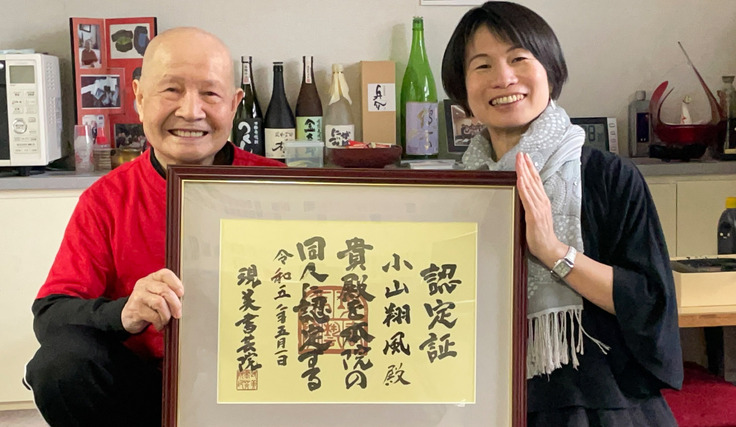 認定証
小山翔風殿
貴殿を本院の
同人に認定する
令和五年五月一日
現美書芸院